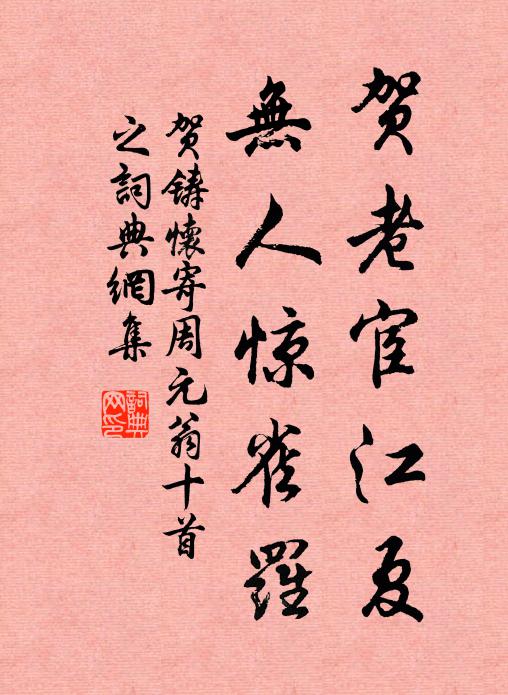 贺老宦江夏
無人惊雀羅
贺鑄懷寄周元翁十首
之詞典網集
詞典網印